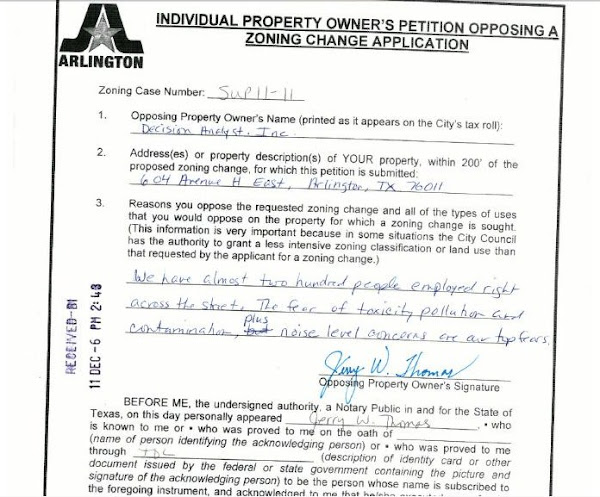 INDIVIDUAL PROPERTY OWNER'S PETITION OPPOSING A
ZONING CHANGE APPLICATION
ARLINGTON
Zoning Case Number: SUP11-11
1. Opposing Property Owner's Name (printed as it appears on the City's tax roll):
Decision Analyst, Inc.
2. Address(es) or property description(s) of YOUR property, within 200' of the
proposed zoning change, for which this petition is submitted:
604 Avenue H East, Arlington, TX 76011
3. Reasons you oppose the requested zoning change and all of the types of uses
that you would oppose on the property for which a zoning change is sought.
(This information is very important because in some situations the City Council
has the authority to grant a less intensive zoning classification or land use than
that requested by the applicant for a zoning change.)
We have almost two hundred people employed right
across the street. The fear of toxicity pollution and
contamination, plus noise level concerns are our top fears.
RECEIVED-BI
11 DEC-6 PM 2:43
Jerry W. Thomas
Opposing Property Owner's Signature
BEFORE ME, the undersigned authority, a Notary Public in and for the State of
Texas, on this day personally appeared Jerry W. Thomas, • who
is known to me or • who was proved to me on the oath of
(name of person identifying the acknowledging person) or • who was proved to me
through TDL (description of identity card or other
document issued by the federal or state government containing the picture and
signature of the acknowledging person) to be the person whose name is subscribed to
the foregoing instrument, and acknowledged to me that